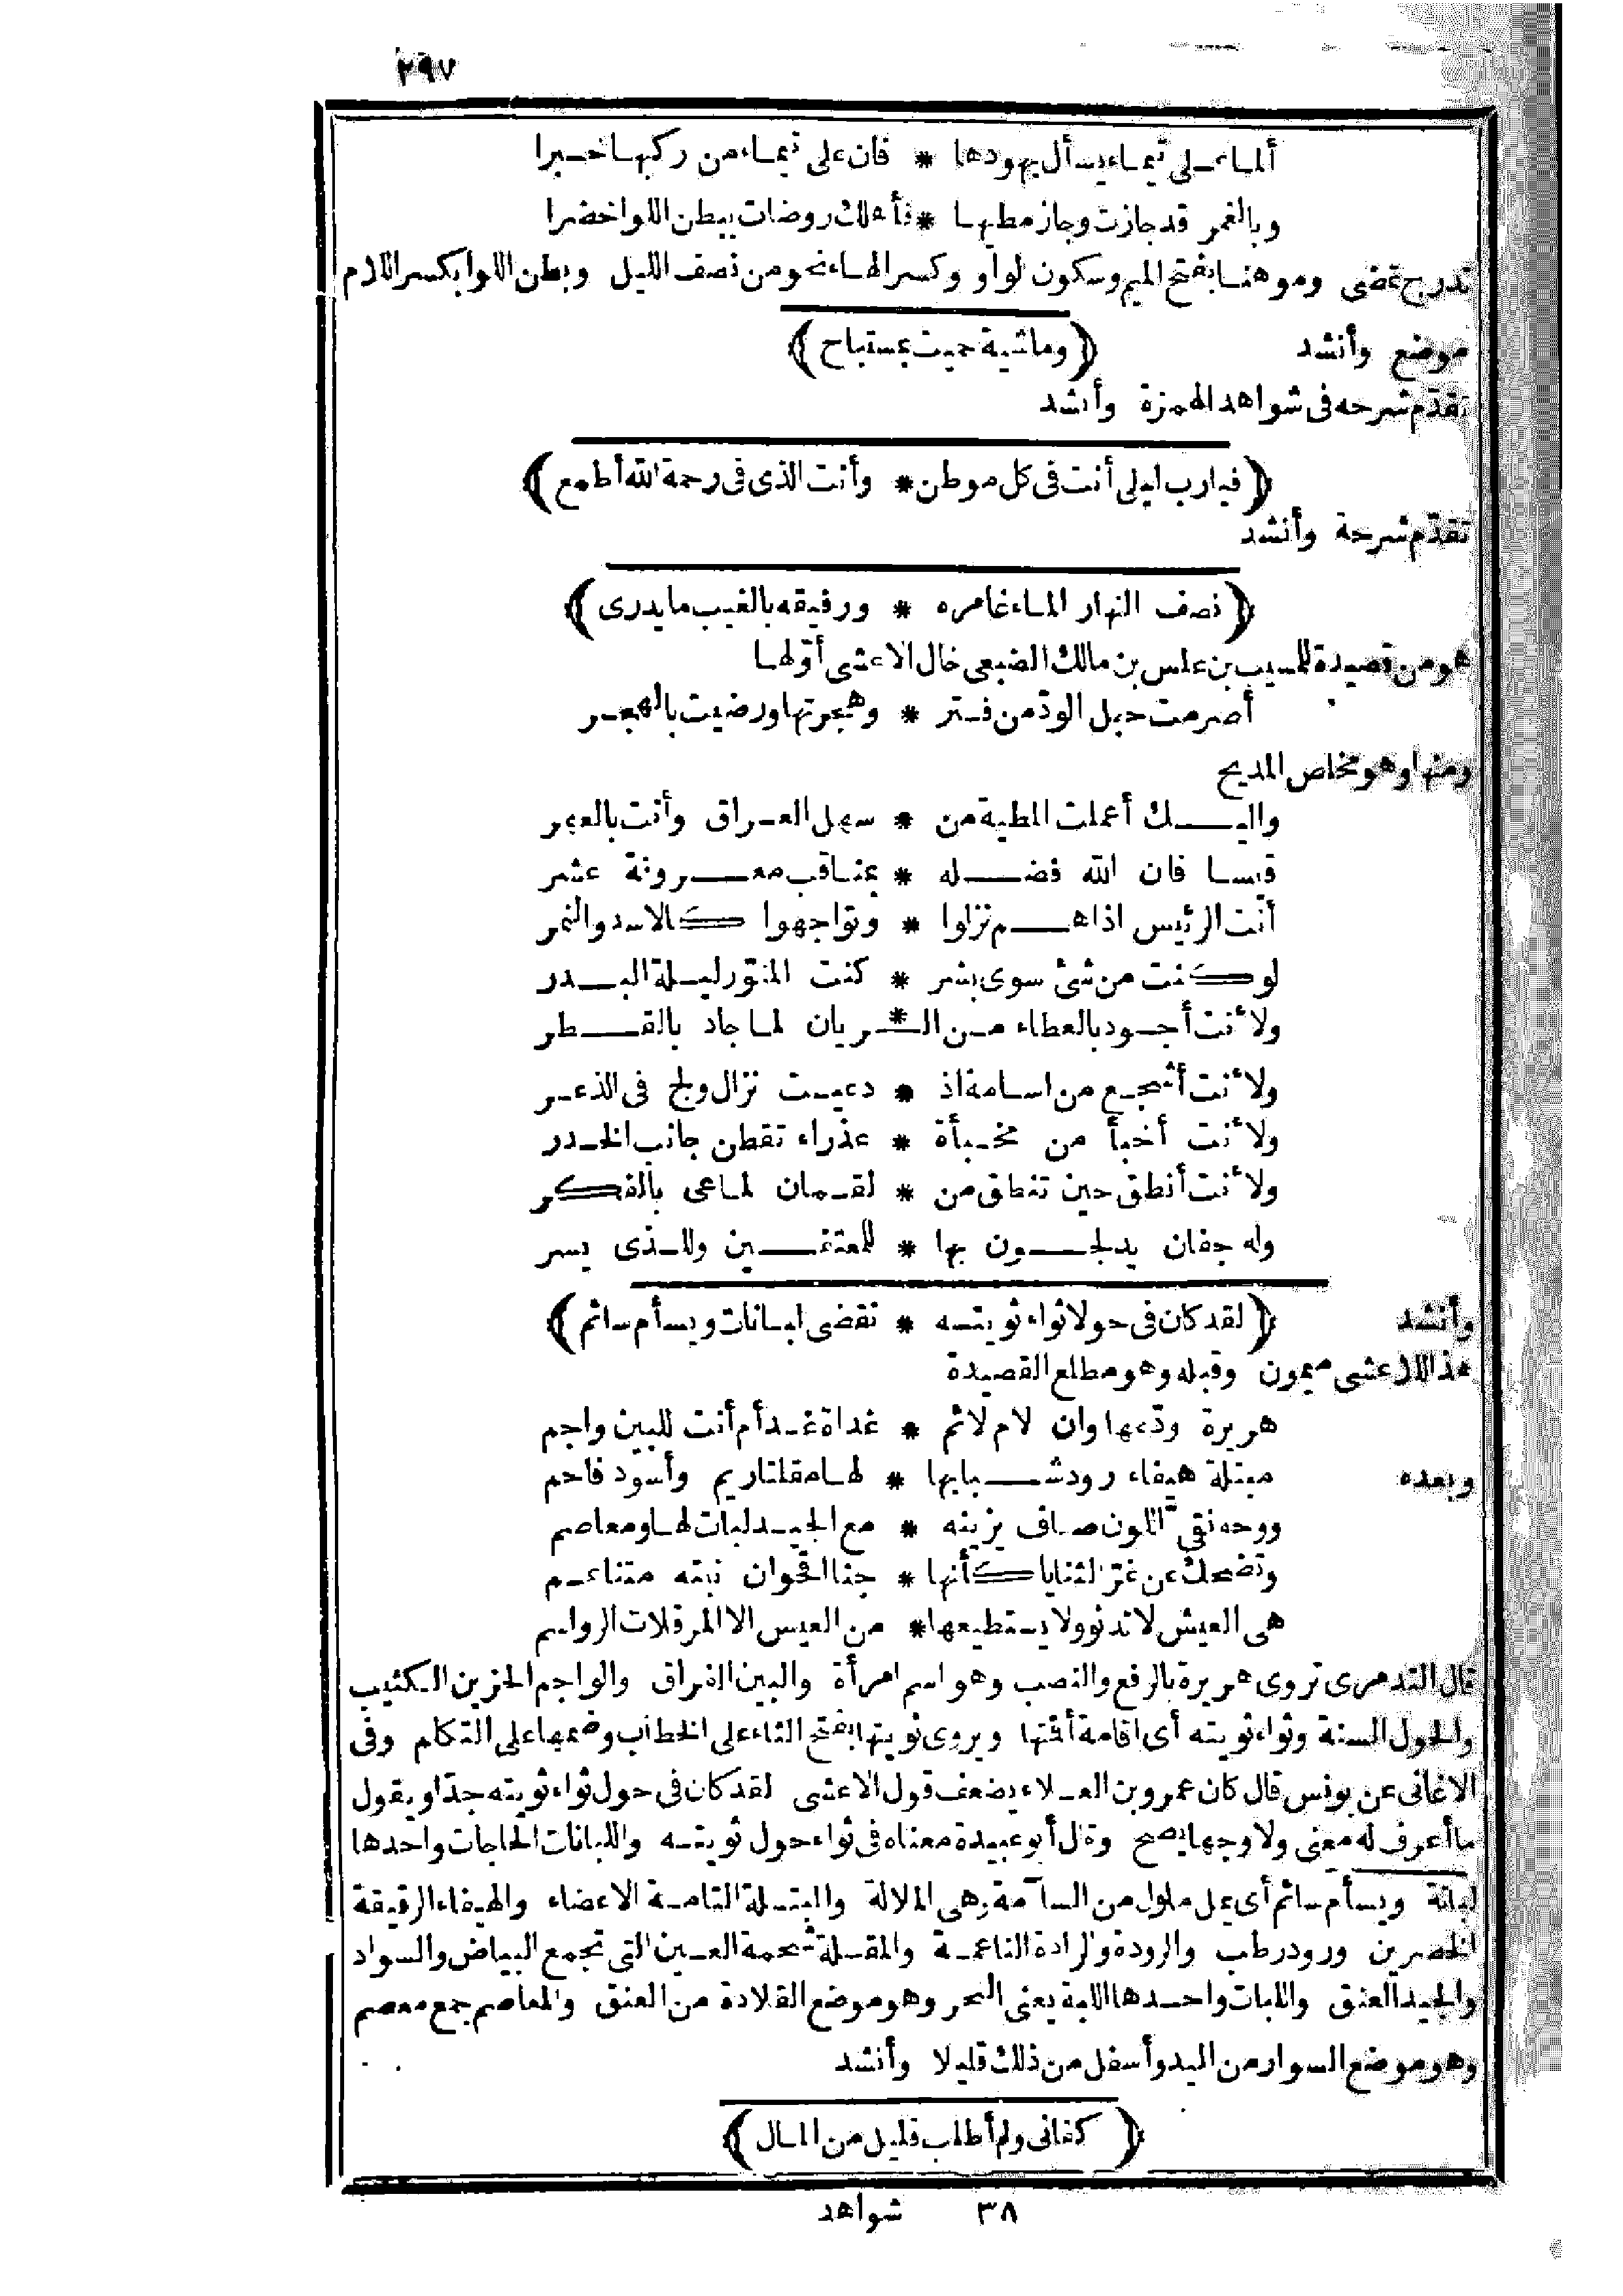 ٢٩٧
ألما على تيماء يسأل يهودها * فان على تيماء من ركبها خبرا
وبالغمر قد جازت وجاز مطيها * فأهلك روضات ببطن اللوا خضرا
تدرج تمضى وموهنا بفتح الميم وسكون لواو وكسر الهاء نحو من نصف الليل وبطن اللوا بكسر اللام
موضع وأنشد (وما شئ حميت بمستباح)
تقدّم شرحه فى شواهد الهمزة وأنشد
(فيا رب ليلى أنت فى كل موطن * وأنت الذى فى رحمة الله أطمع)
تقدّم شرحة وأنشد
(نصف النهار الماء غامره * ورفيقه بالغيب ما يدرى)
هو من قصيدة للمسيب بن علس بن مالك الضبعى خال الاعشى أوّلها
أصرمت حبل الودّ من فتر * وهجرتها ورضيت بالهجر
ومنها وهو مخلص المديح
واليك أعملت المطية من * سهل العراق وأنت بالعهر
قيسا فان الله فضله * بمناقب معرونة عشر
أنت الرئيس اذا هم نزلوا * وتواجهوا كالاسد والنمر
لو كنت من شئ سوى بشر * كنت المنوّر ليلة البدر
ولأنت أجود بالعطاء من الـ*ـريان لما جاد بالقطر
ولأنت أشجع من اسامة اذ * دعيت نزال ولج فى الذعر
ولأنت أخبأ من مخبأة * عذراء تقطن جانب الخدر
ولأنت أنطق حين تنطق من * لقمان لما عى بالفكر
وله جفان يدلجون بها * للمعتفين وللذى يسر
وأنشد (لقد كان فى حولا ثواء ثويته * تقضى لبانات ويسأم سائم)
هذا للاعشى ميمون وقبله وهو مطلع القصيدة
هريرة ودّعها وان لام لائم * غداة غد أم أنت للبين واجم
وبعده مبتلة هيفاء رود شبابها * لها مقلتا ريم وأسود فاحم
ووجه نقىّ اللون صاف يزينه * مع الجيد لبات لها ومعاصم
وتضحك عن غرّ الثنايا كأنها * جنا اقحوان نبته متناعم
هى العيش لا تدنو ولا يستطيعها * من العيس الا المرقلات الرواسم
قال التدمرى تروى هريرة بالرفع والنصب وهو اسم امرأة والبين الفراق والواجم الحزين الكئيب
والحول السنة وثواء ثويته أى اقامة أقتها ويروى ثويتها بفتح الثاء على الخطاب وضمها على التكلم وفى
الاغانى عن يونس قال كان عمرو بن العلاء يضعف قول الاعشى لقد كان فى حول ثواء ثويته جدّا ويقول
ما أعرف له معنى ولا وجها يصح وقال أبو عبيدة معناه فى ثواء حول ثويته واللبانات الحاجات واحدها
لبانة ويسأم سائم أى يمل ملول من السآمة وهى الملالة والمبتلة التامة الاعضاء والهيفاء الرقيقة
الخصرين ورود رطب والرودة والرادة الناعمة والمقلة شحمة العين التى تجمع البياض والسواد
والجيد العنق واللبات واحدها اللبة يعنى النحر وهو موضع القلادة من العنق والمعاصم جمع معصم
وهو موضع السوار من اليد وأسفل من ذلك قليلا وأنشد
(كفانى ولم أطلب قليل من المال)
٣٨ شواهد